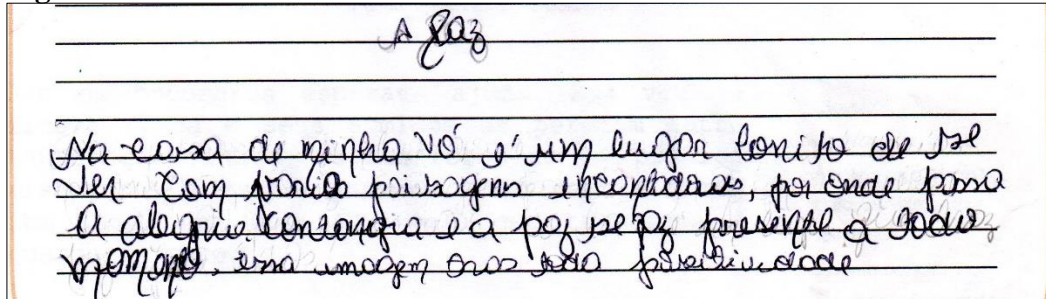 A Paz
Na casa de minha vó é um lugar bonito de se
ver com varias paisagens encantadoras, por onde passa
a alegria contangia e a paz se faz presente a todo
momento, essa imagem traz toda positividade